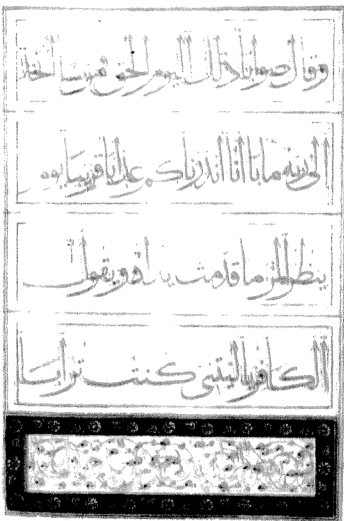 وقال صوابا ذلك اليوم الحق فمن شا اتخذ
الى ربه مابا انا انذرناكم عذابا قريبا يوم
ينظر المرء ما قدمت يداه ويقول
الكافر يا ليتنى كنت ترابا